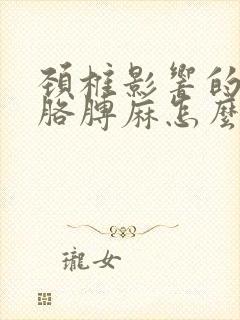 頸椎影響的
胳膊麻怎麼
瓏女